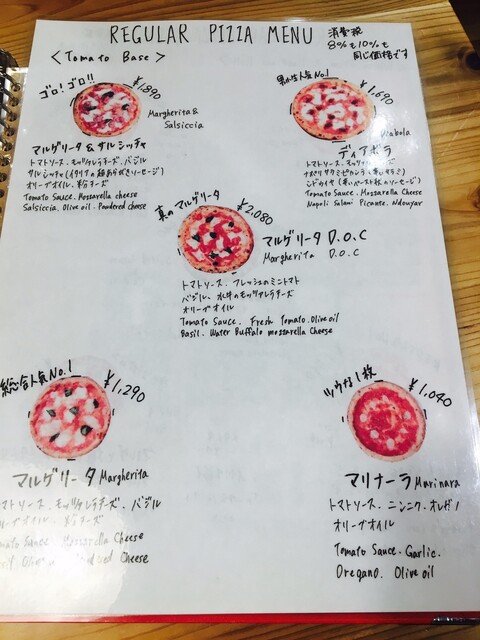 REGULAR PIZZA MENU
消費税
8%も10%も
同じ価格です
< Tomato Base >
ゴロ!ゴロ!!
¥1,890
Margherita &
Salsiccia
マルゲリータ & サルシッチャ
トマトソース、モッツァレラチーズ、バジル
オリーブオイル、粉チーズ
Tomato Sauce. Mozzarella cheese
Salsiccia. Olive oil. Powdered cheese
人気No.1
¥1,690
Diabola
ディアボラ
トマトソース、
Tomato Sauce. Mozzarella Cheese
Napoli Salami Picante. Ndouyar
真のマルゲリータ
¥2,080
マルゲリータ D.O.C
Margherita D.O.C
トマトソース、フレッシュのミニトマト
バジル、水牛のモッツァレラチーズ
オリーブオイル
Tomato Sauce. Fresh Tomato. Olive oil
Basil. Water Buffalo mozzarella Cheese
総合人気No.1
¥1,290
マルゲリータ Margherita
トマトソース、モッツァレラチーズ、バジル
オリーブオイル、粉チーズ
Tomato Sauce. Mozzarella Cheese
Cheese
ツウな1枚
¥1,040
マリナーラ Marinara
トマトソース、ニンニク、オレガノ
オリーブオイル
Tomato Sauce. Garlic.
Oregano. Olive oil